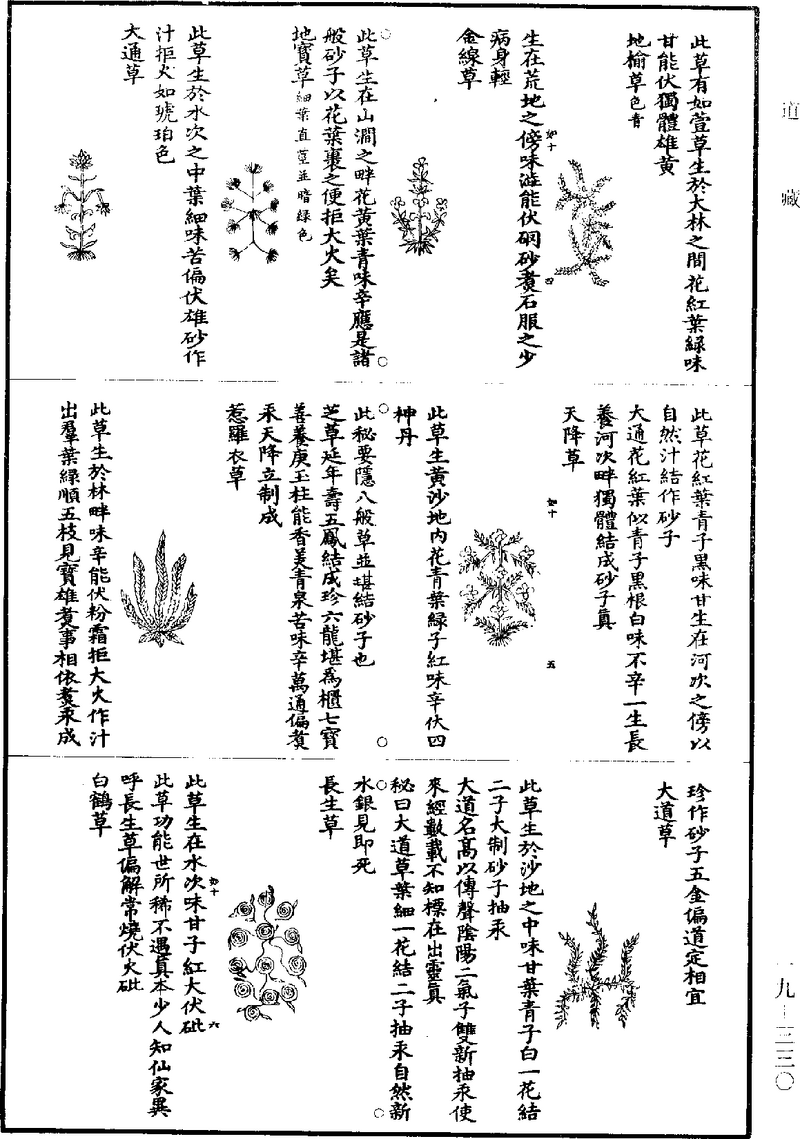 道藏
此草有如萱草生於大林之間花紅葉綠味
甘能伏獨體雄黃
地榆草色青
如十
四
生在荒地之傍味澁能伏硇砂煑石服之少
病身輕
金線草
此草生在山澗之畔花黃葉青味辛應是諸
般砂子以花葉裹之便拒大火矣
地寶草細葉直莖並暗綠色
此草生於水次之中葉細味苦偏伏雄砂作
汁拒火如琥珀色
大通草
此草花紅葉青子黑味甘生在河次之傍以
自然汁結作砂子
大通花紅葉似青子黑根白味不辛一生長
養河次畔獨體結成砂子真
天降草
如十
五
此草生黃沙地內花青葉綠子紅味辛伏四
神丹
此秘要隱八般草並堪結砂子也
芝草延年壽五鳳結成珍六龍堪為櫃七寶
善養庚玉柱能香美青泉苦味辛萬通偏煑
汞天降立制成
惹羅衣草
此草生於林畔味辛能伏粉霜拒大火作汁
出羣葉綠順五枝見寶雄煑事相依煑汞成
珍作砂子五金偏道定相宜
大道草
此草生於沙地之中味甘葉青子白一花結
二子大制砂子抽汞
大道名高以傳聲陰陽二氣子雙新抽汞使
來經數載不知標在出靈真
秘曰大道草葉細一花結二子抽汞自然新
水銀見即死
長生草
如十
六
此草生在水次味甘子紅大伏砒
此草功能世所稀不遇真本少人知仙家異
呼長生草偏解常燒伏火砒
白鶴草
一九—三三〇